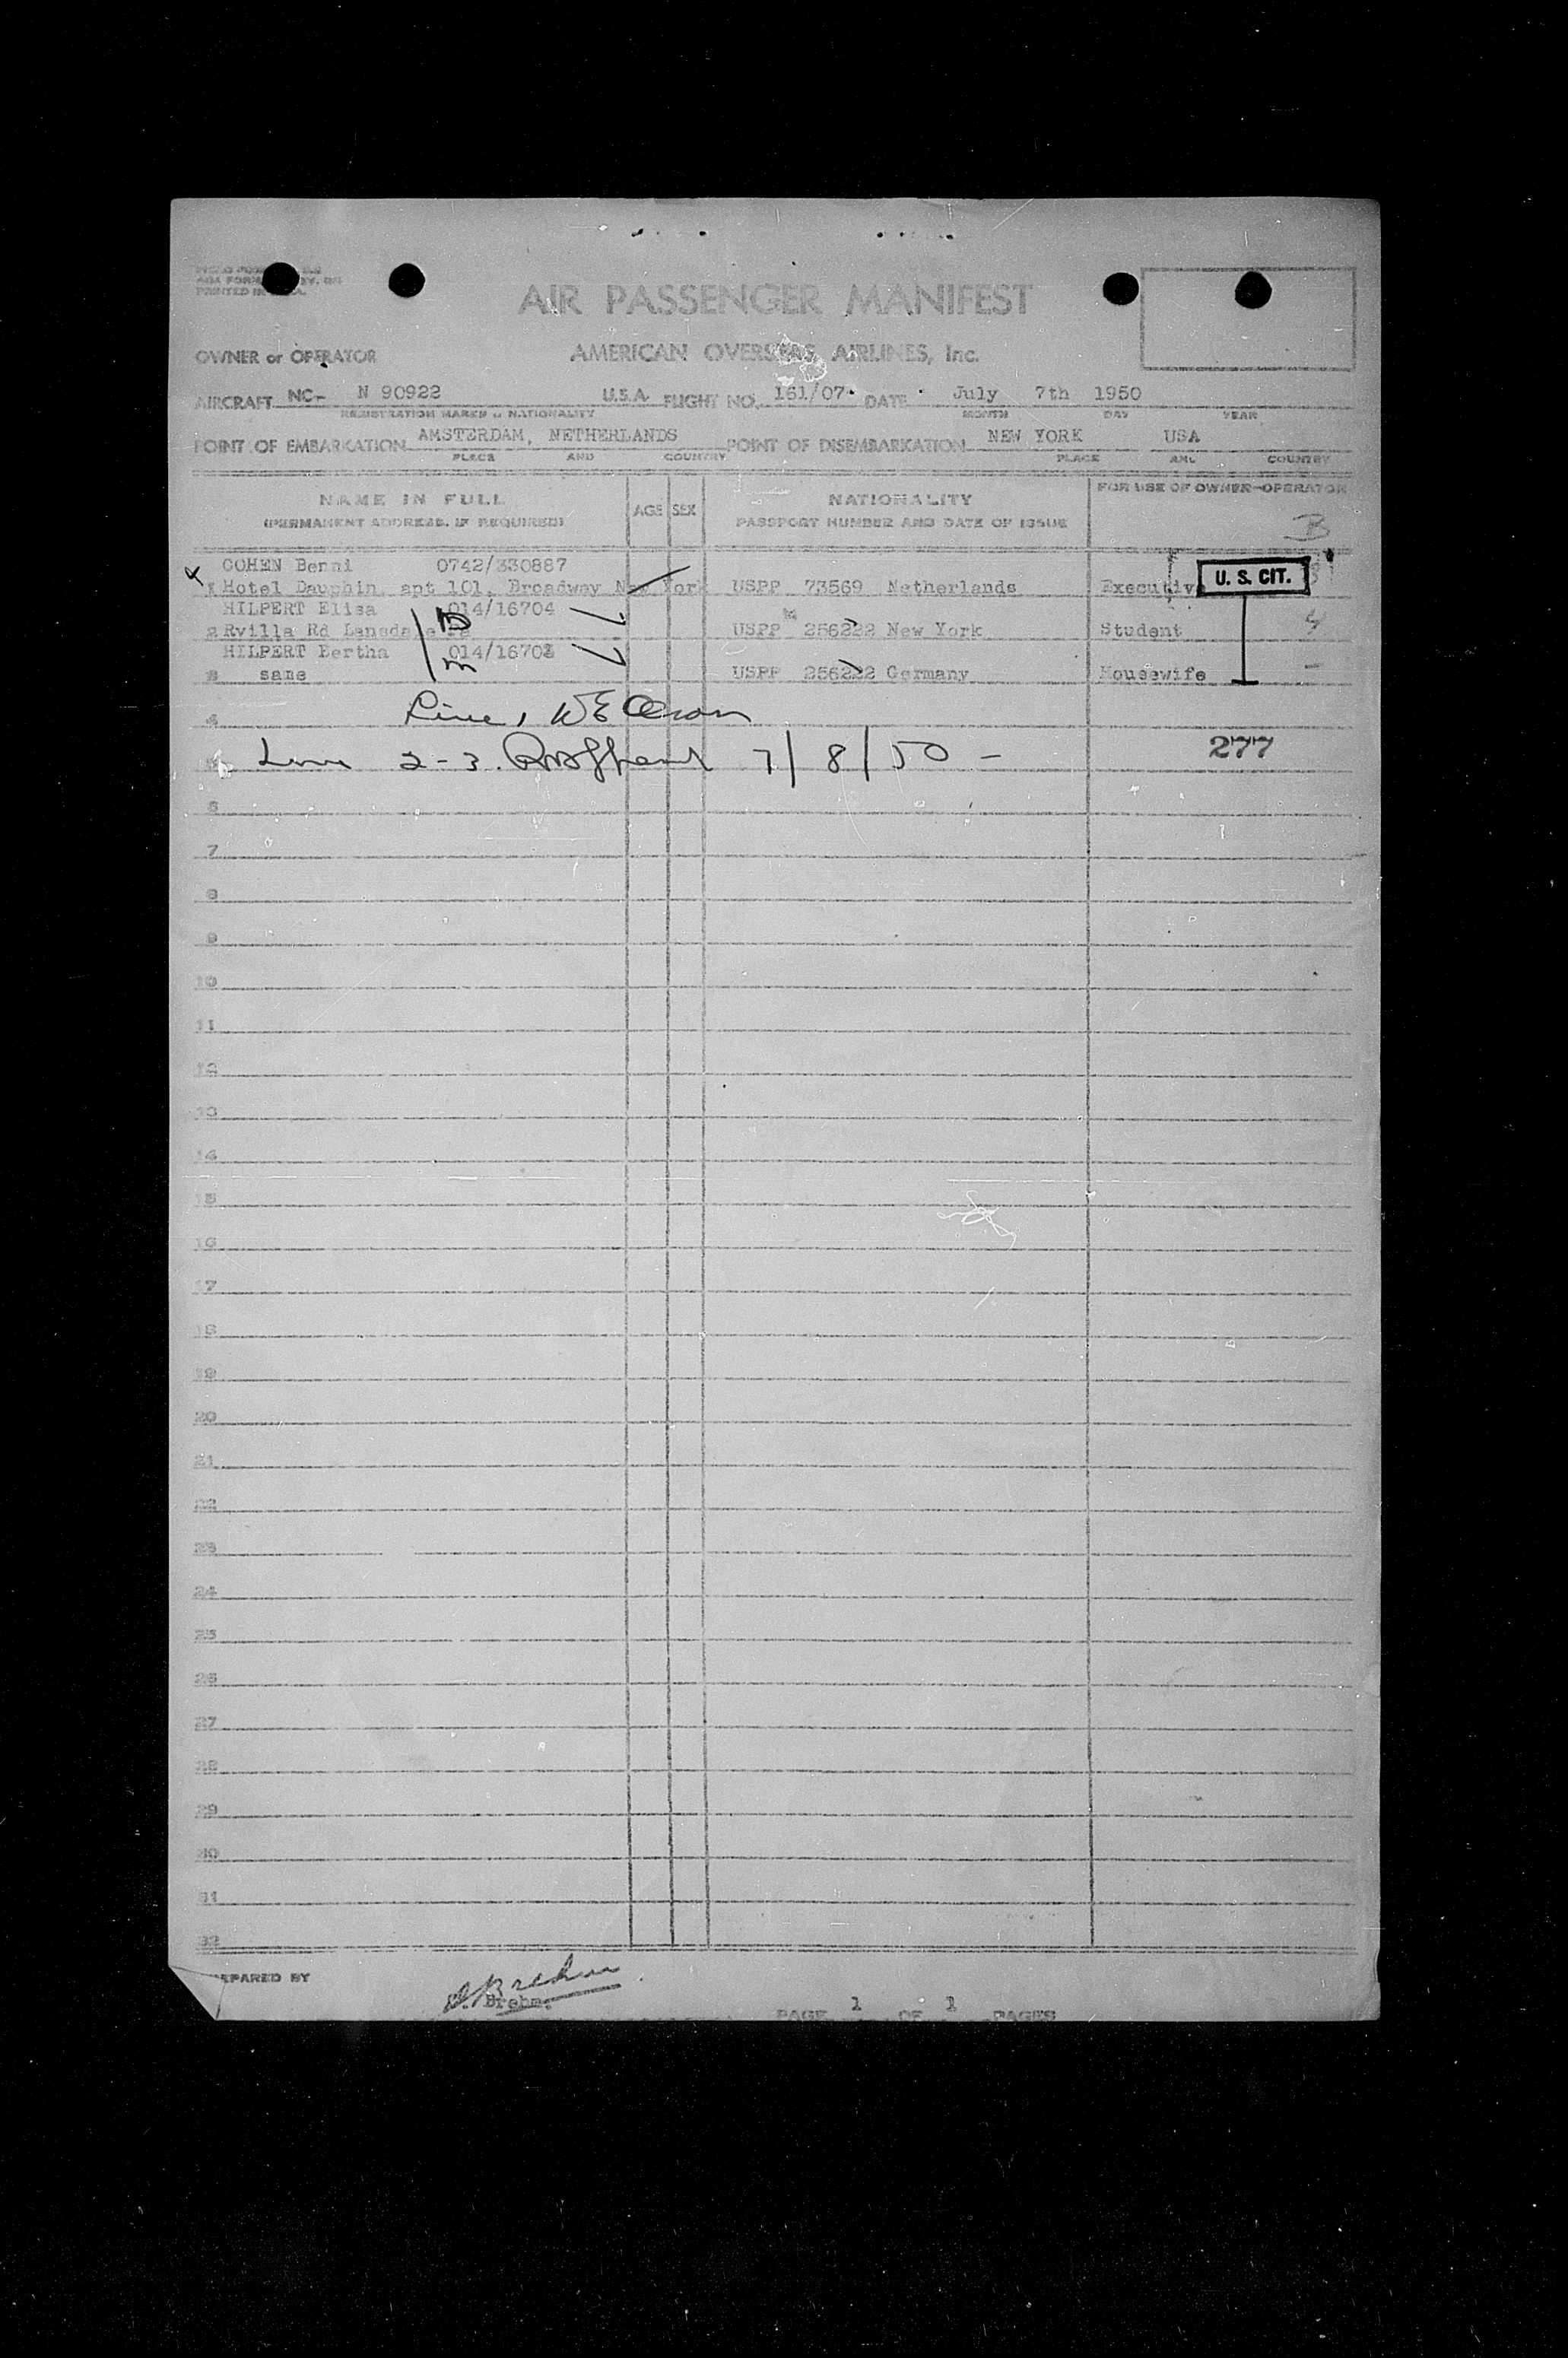 PRINTED IN
AIR PASSENGER MANIFEST
OWNER or OPERATOR AMERICAN OVERSEAS AIRLINES, Inc.
AIRCRAFT NC- N 90922 U.S.A. FLIGHT NO. 161/07 DATE July 7th 1950
REGISTRATION MARKS & NATIONALITY MONTH DAY YEAR
POINT OF EMBARKATION AMSTERDAM, NETHERLANDS POINT OF DISEMBARKATION NEW YORK USA
PLACE AND COUNTRY PLACE AND COUNTRY
NAME IN FULL AGE SEX NATIONALITY FOR USE OF OWNER-OPERATOR
(PERMANENT ADDRESS, IF REQUIRED) PASSPORT NUMBER AND DATE OF ISSUE
B
COHEN Benni 0742/330887
1 Hotel Dauphin, apt 101, Broadway New York USPP 73569 Netherlands Executive U. S. CIT.
HILPERT Elisa 014/16704
2 Rvilla Rd Lansdale Pa USPP 256222 New York Student
HILPERT Bertha 014/16703
3 same USPP 256222 Germany Housewife
4 Line 1
5 Line 2-3. 7/8/50 - 277
6
7
8
9
10
11
12
13
14
15
16
17
18
19
20
21
22
23
24
25
26
27
28
29
30
31
32
PREPARED BY Brehm
Brehm.
PAGE 1 OF 1 PAGES